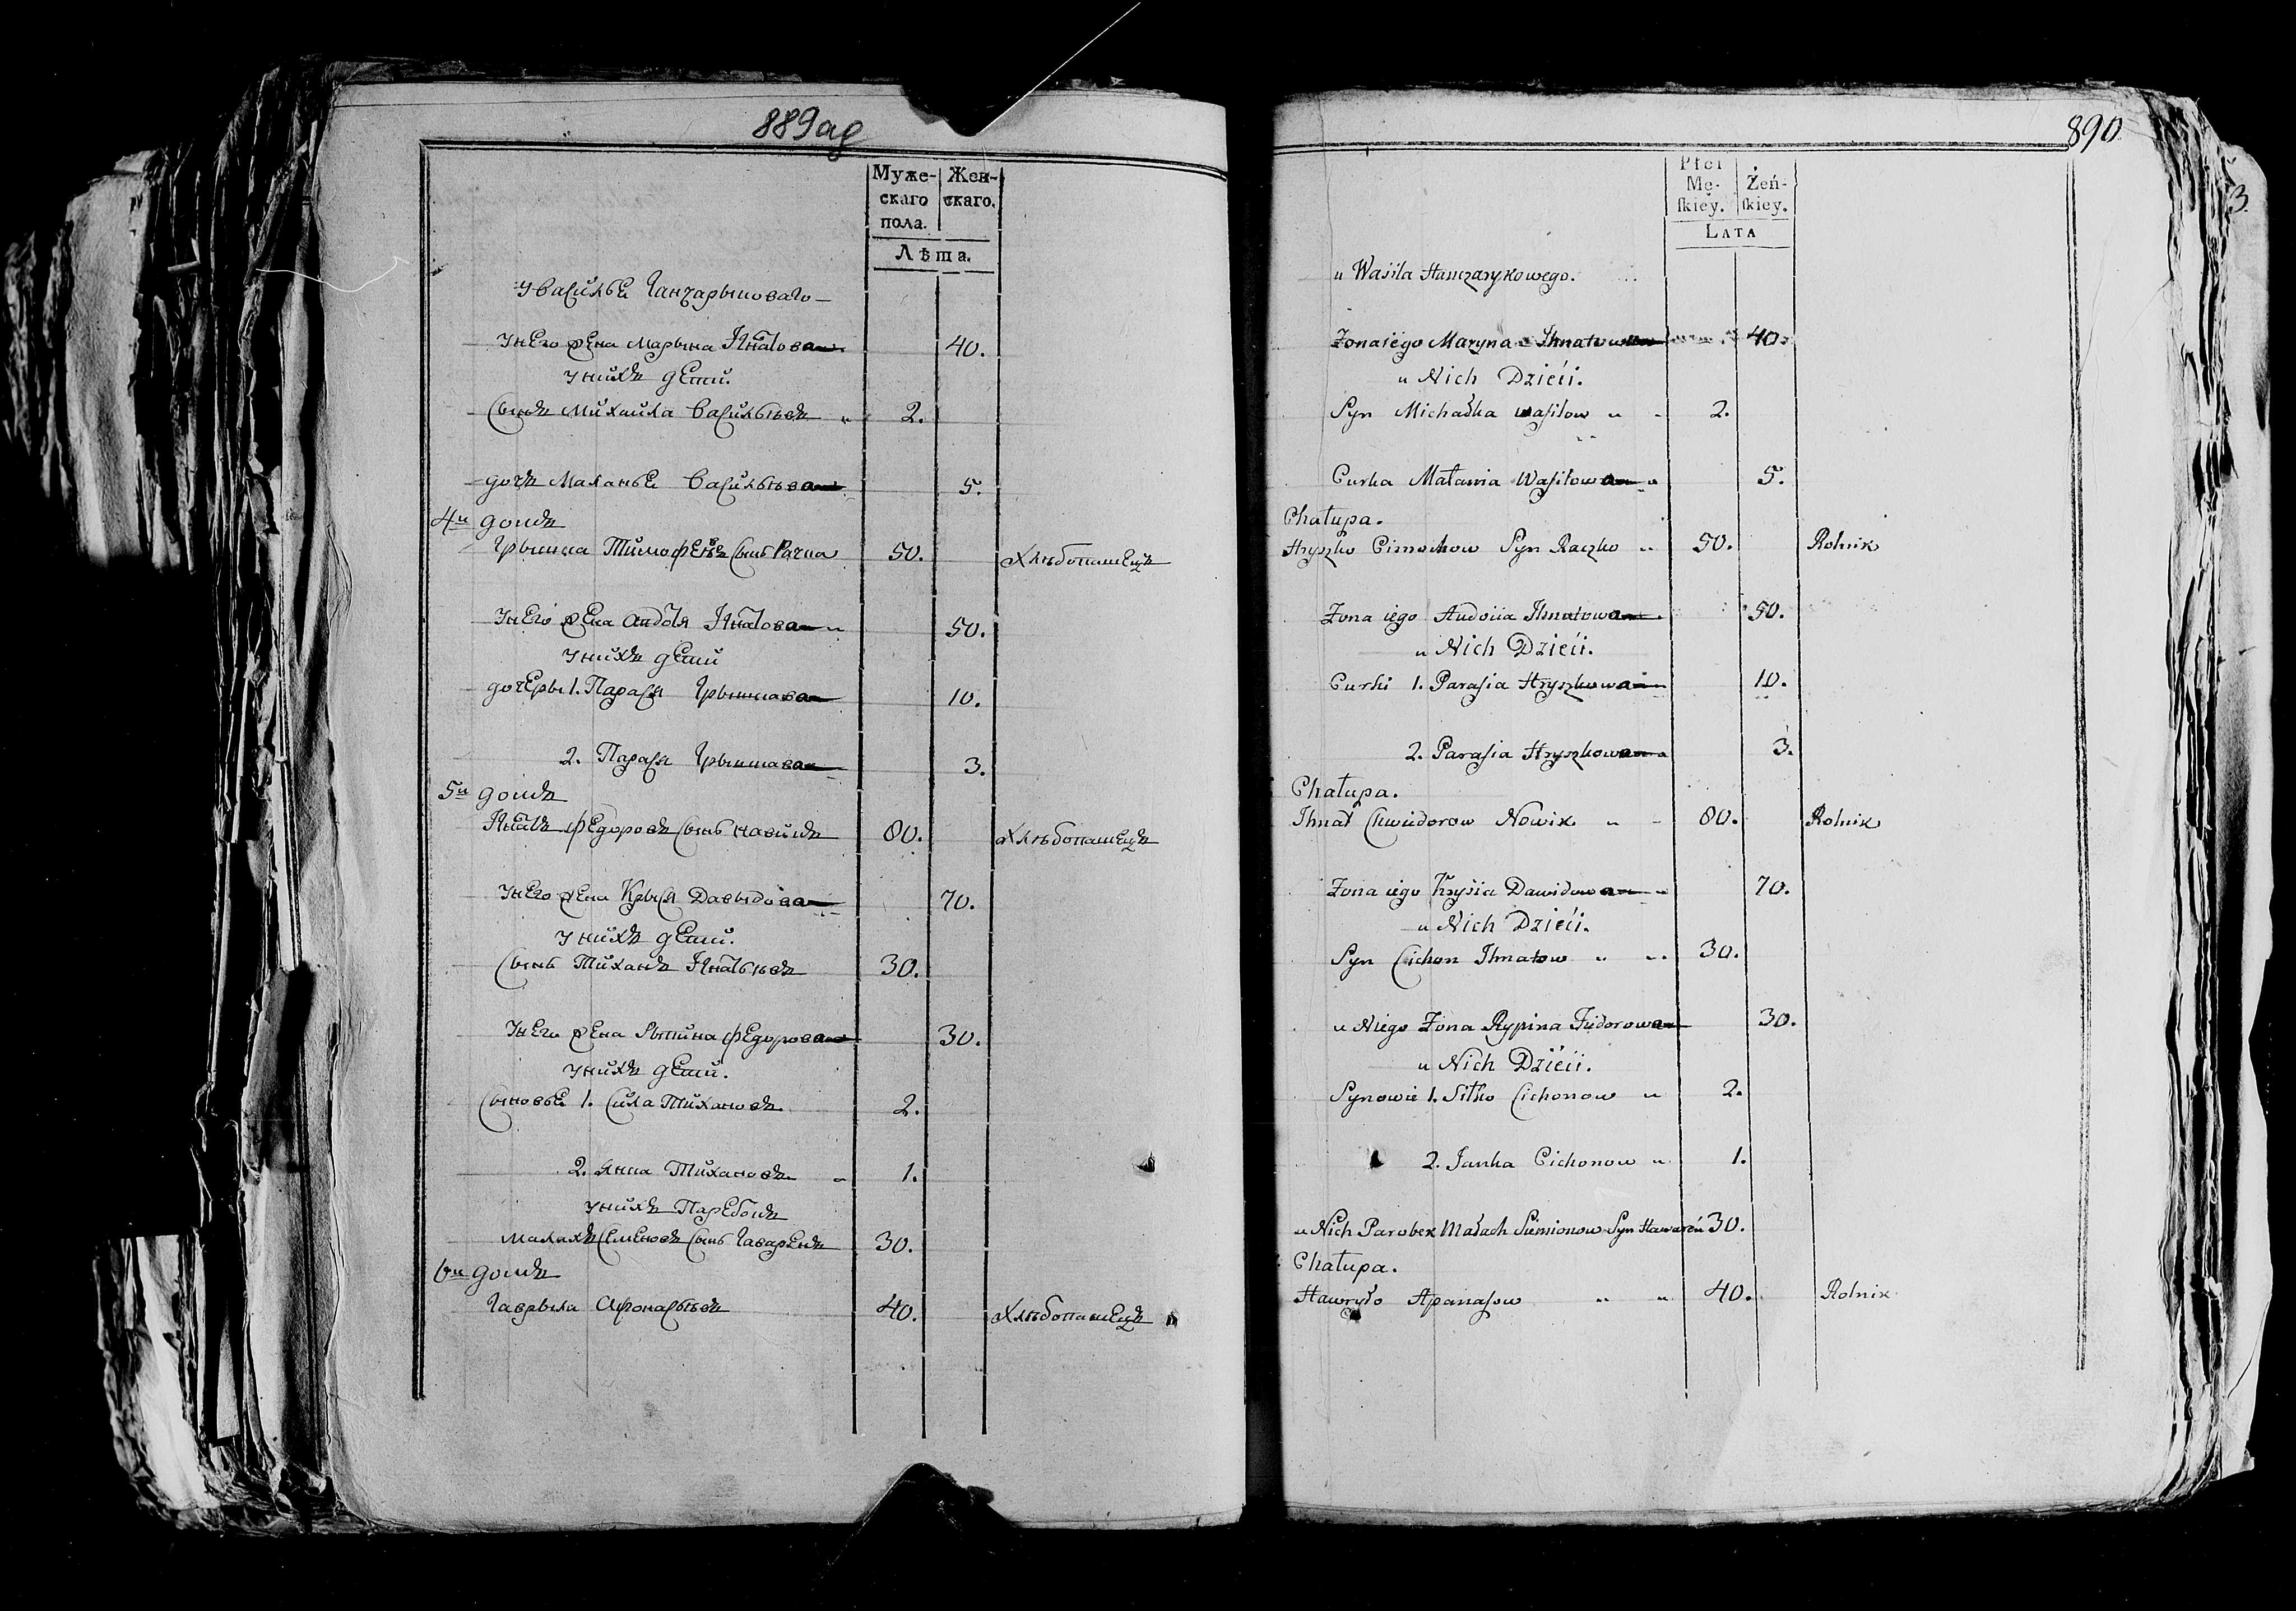 889 об
Муже-
скаго
пола.
Жен-
скаго.
Лѣта.
у Василье Ганчарыковаго
у него жена Марына Ігнатова 40.
у нихъ дети.
Сынъ Михайла Васильевъ 2.
дочъ Маланье Васильева 5.
4й домъ
Грышка Тимофеевъ Сынъ Рачка 50. Хлѣбопашецъ
у него жена Авдотя Ігнатова 50.
у нихъ дети
дочеры 1. Парася Грышкова 10.
2. Парася Грышкова 3.
5й домъ
Ігнатъ Федоровъ Сынъ Новикъ 80. Хлѣбопашецъ
у него жена Крыся Давыдова 70.
у нихъ дети.
Сынъ Тиханъ Ігнатьевъ 30.
у него жена Рыпина Федорова 30.
у нихъ дети.
Сыновье 1. Сила Тихановъ 2.
2. Янка Тихановъ 1.
у нихъ Паребокъ
Малахъ Семеновъ Сынъ 30.
6й домъ
Гаврыла Афонасьевъ 40. Хлѣбопашецъ
890
3.
Płci
Mę-
ſkiey.
Żeń-
ſkiey.
LATA
u Wasila Hanczarykowego.
Zona iego Maryna Ihnatowa 40.
u Nich Dzieci.
Syn Michałka Wasilow 2.
Curka Małania Wasilowa 5.
Chałupa.
Hryszko Cimochow Syn Raczko 50. Rolnik
Zona iego Audoiia Ihnatowa 50.
u Nich Dzieci.
Curki 1. Parasia Hryszkowa 10.
2. Parasia Hryszkowa 3.
Chałupa.
Ihnat Chwiidorow Nowik 80. Rolnik
Zona iego Krysia Dawidowa 70.
u Nich Dzieci.
Syn Cichon Ihnatow 30.
u Niego Zona Rypina Fiidorowa 30.
u Nich Dzieci.
Synowie 1. Siłko Cichonow 2.
2. Janka Cichonow 1.
u Nich Parobek Małach Siemionow Syn 30.
Chałupa.
Hawryło Apanasow 40. Rolnik